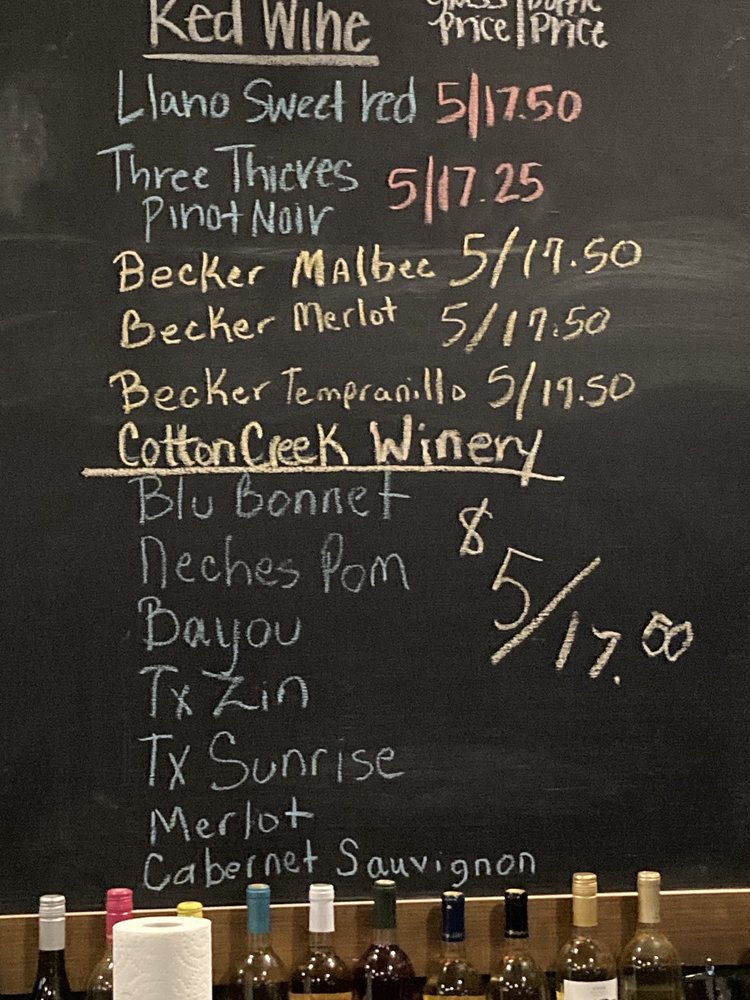 Red Wine
Glass Price | Bottle Price
Llano Sweet red 5/17.50
Three Thieves
Pinot Noir 5/17.25
Becker Malbec 5/17.50
Becker Merlot 5/17.50
Becker Tempranillo 5/19.50
Cotton Creek Winery
Blu Bonnet
Neches Pom
Bayou
Tx Zin
Tx Sunrise
Merlot
Cabernet Sauvignon
$5/17.50